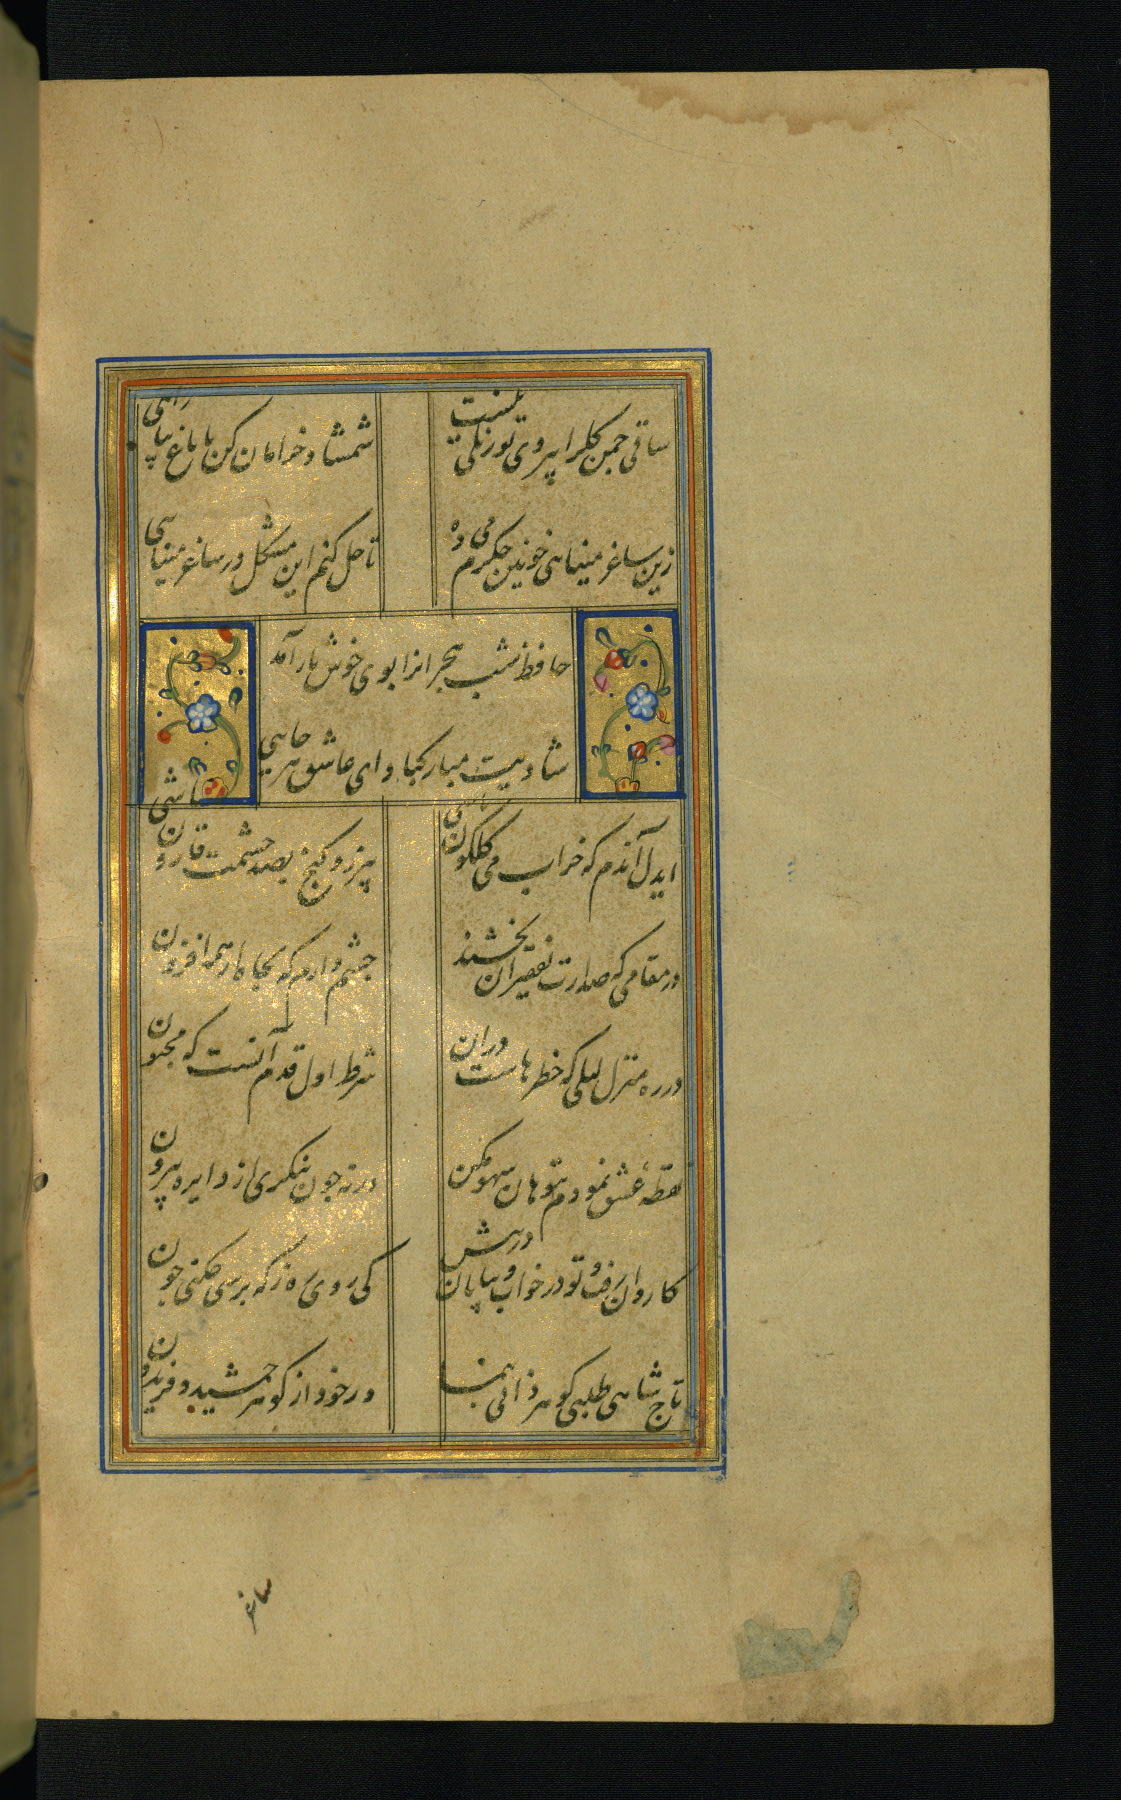 ساقی چمن گل را بی روی تو رنگی نیست
شمشاد خرامان کن تا باغ بیارائی
زین ساغر مینائی خونین جگرم می ده
تا حل کنم این مشکل در ساغر مینائی
حافظ شب هجرانرا بوی خوش یار آمد
شادیت مبارکباد ای عاشق هرجایی
ایدل آندم که خراب می گلگون باشی
بی زر و گنج بصد حشمت قارون باشی
در مقامی که صدارت بفقیران بخشند
چشم دارم که بجاه از همه افزون
در ره منزل لیلی که خطرهاست دران
شرط اول قدم آنست که مجنون
نقطهٔ عشق نمودم بتو هان سهو مکن
ورنه چون بنگری از دایره بیرون
کاروان رفت و تو در خواب و بیابان در پیش
کی روی ره ز که پرسی چکنی چون
تاج شاهی طلبی گوهر ذاتی بنما
در خود از گوهر جمشید و فریدون
ساغر